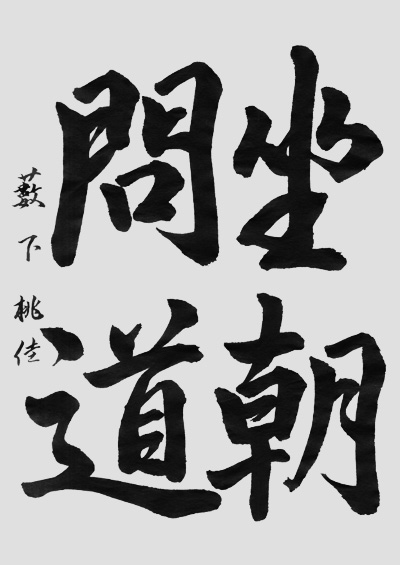 坐朝
問道
藪下桃佳